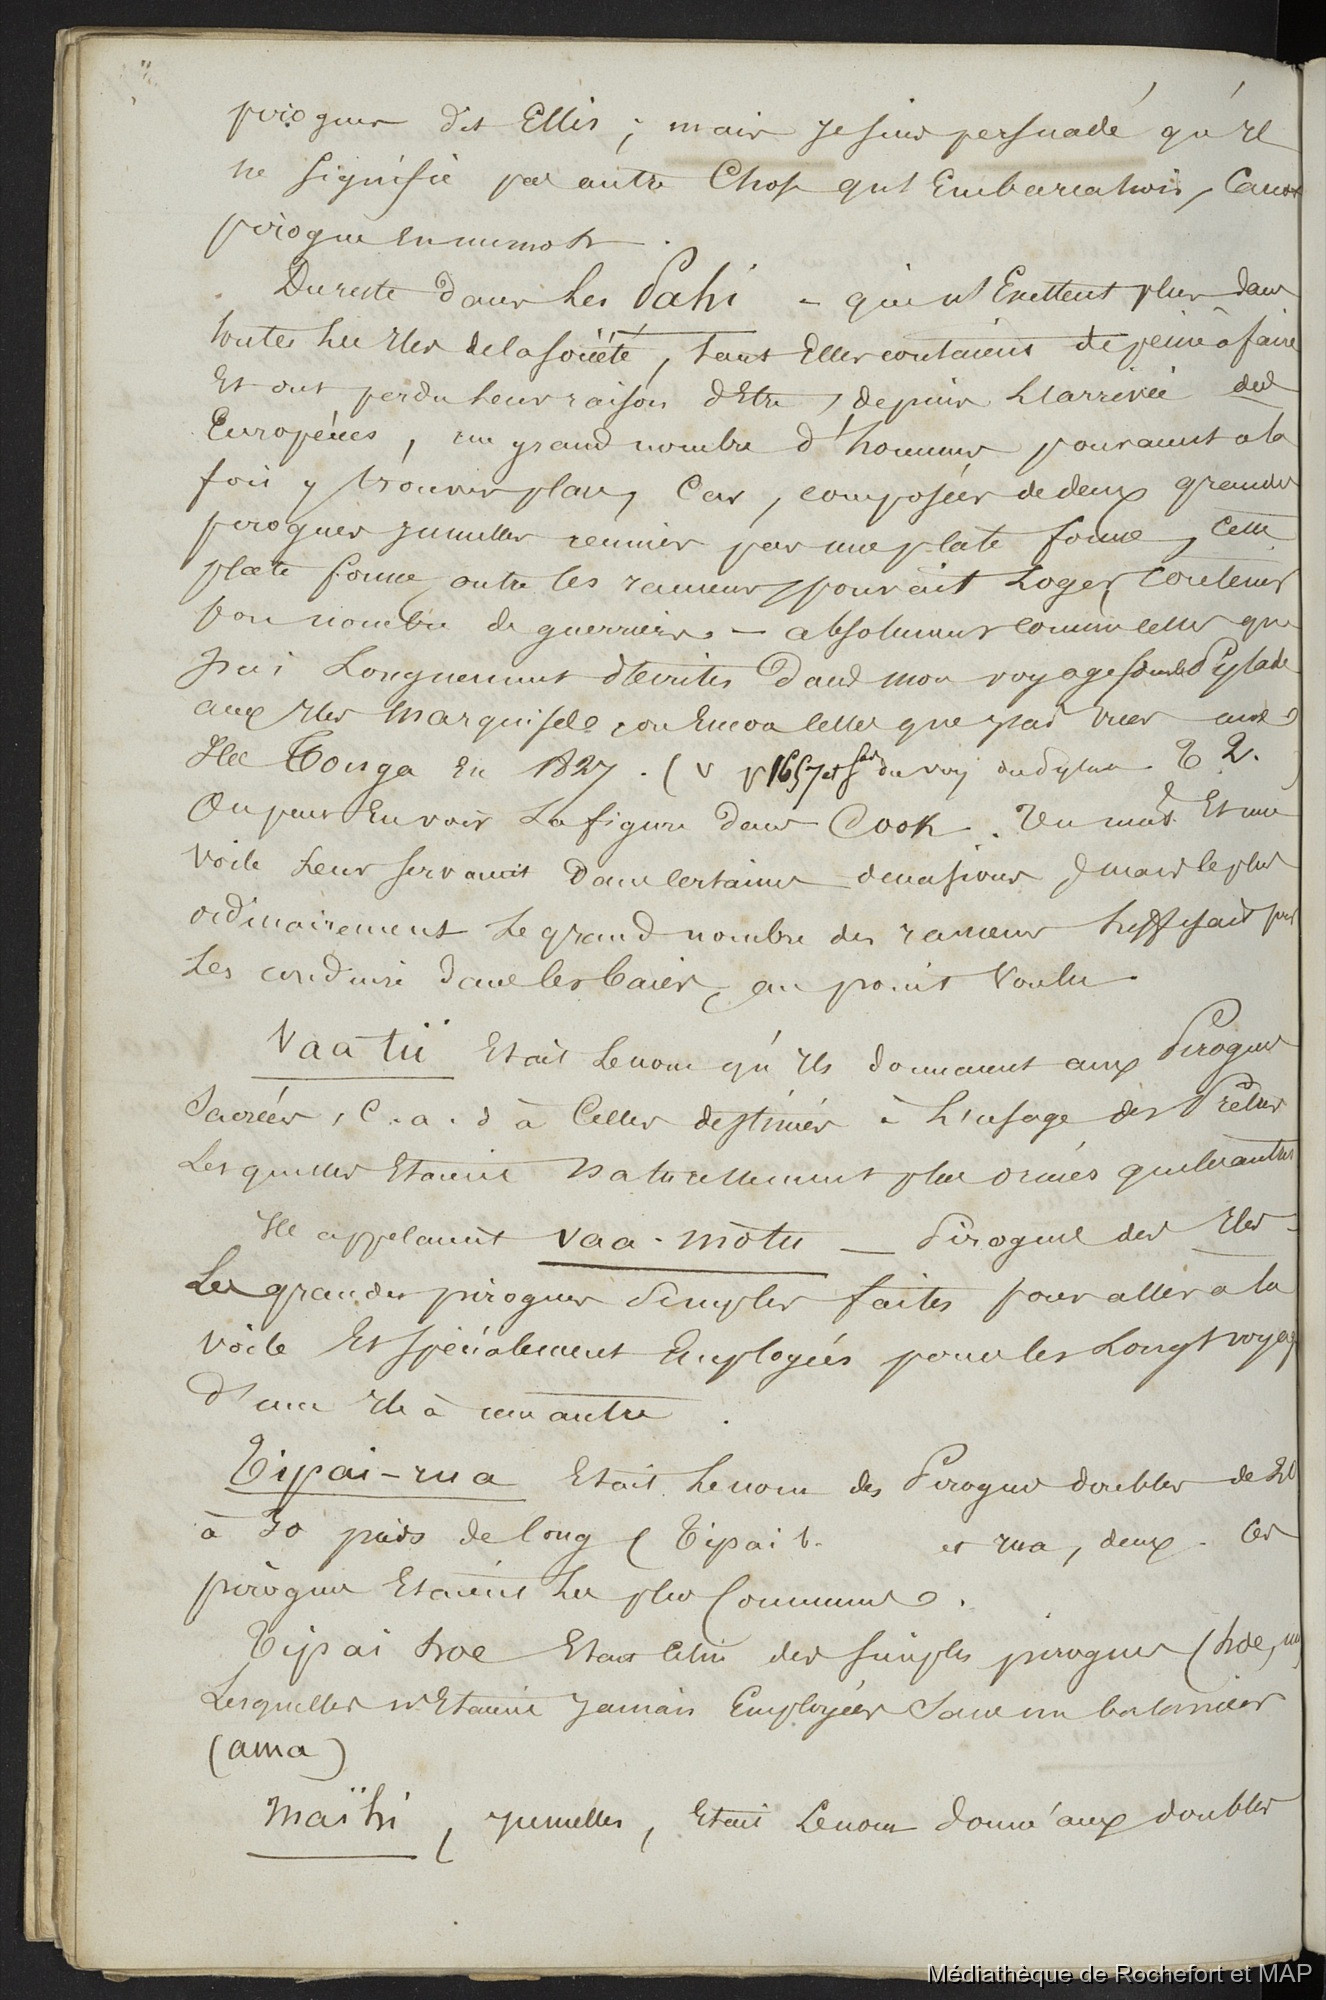 pirogues dit Ellis ; mais je suis persuadé qu'il
ne signifie pas autre chose qu'Embarcation, Canot
pirogue en un mot .
Du reste dans les Pahi - qui n'Existent plus dans
toutes les Iles de la Société, tant Elles coutaient de peine à faire
Et ont perdu leur raison d'Etre, depuis l'arrivée des
Européens, un grand nombre d'hommes pouvaient a la
fois y trouver place, Car, composées de deux grandes
pirogues jumelles réunies par une plate forme, cette
plate forme, outre les rameurs, pouvait loger, contenir
bon nombre de guerriers. - absolument comme celles que
j'ai Longuement décrites Dans mon voyage sur le Pylade
aux Iles Marquises, ou Encore celles que j'ai vues aux
Iles Tonga En 1827 . ( v p 165 et du voy du Pylade T 2. )
On peut En voir La figure dans Cook . Un mat Et une
voile leur servaient Dans certaines occasions, mais le plus
ordinairement le grand nombre des rameurs suffisait pour
Les conduire dans les baies, au point voulu .
Vaa tii Etait Le nom qu'ils donnaient aux Pirogues
Sacrées, C . a . d à Celles destinées à L'usage des Prêtres
Lesquelles Etaient Naturellement plus ornées que les autres
Ils appelaient vaa-motu — Pirogues des Iles -
Les grandes pirogues Simples faites pour aller a la
voile Et spécialement Employées pour les Longs voyag
D'une Ile à une autre .
Tipai-rua Etait Le nom des Pirogues doubles de
à 30 pieds de long ( Tipai t. et rua, deux . Ces
pirogues Etaient les plus Communes .
Tipai hoe Etait celui des simples pirogues ( hoe, un)
Lesquelles n'Etaient jamais Employées Sans un balancier
(ama)
Maïhi, jumelles, Etait Le nom donné aux doubles
Médiathèque de Rochefort et MAP